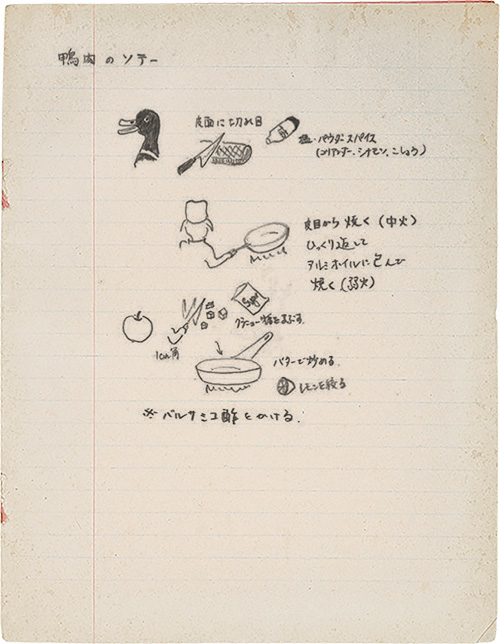 鴨肉のソテー
皮面に切れ目
塩・パウダースパイス
(コリアンダー、シナモン、こしょう)
皮目から焼く(中火)
ひっくり返して
アルミホイルに包んで
焼く(弱火)
Sugar
グラニュー糖をまぶす。
1cm角
バターで炒める。
レモンを絞る
※バルサミコ酢をかける。